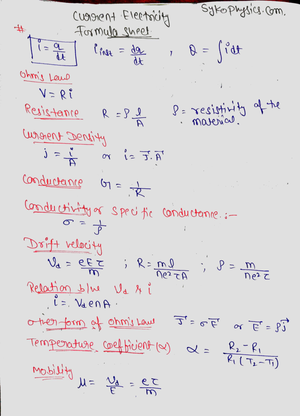 Current Electricity Sykophysics.Com.
Formula sheet
i = q/dt i inst = dq/dt , Q = ∫idt
Ohm's Law
V = Ri
Resistance R = ρ l/A ρ = resistivity of the
material.
Current Density
j = i/A or i = J⃗.A⃗
Conductance G = 1/R
Conductivity or specific conductance :-
σ = 1/ρ
Drift velocity
Vd = eEτ/m ; R = ml/ne²τA ; ρ = m/ne²τ
Relation b/w Vd & i
i = VdenA.
other form of ohm's Law J⃗ = σE⃗ or E⃗ = ρJ⃗
Temperature Coefficient (α) α = R₂ - R₁/R₁(T₂ - T₁)
Mobility
μ = Vd/E = eτ/m